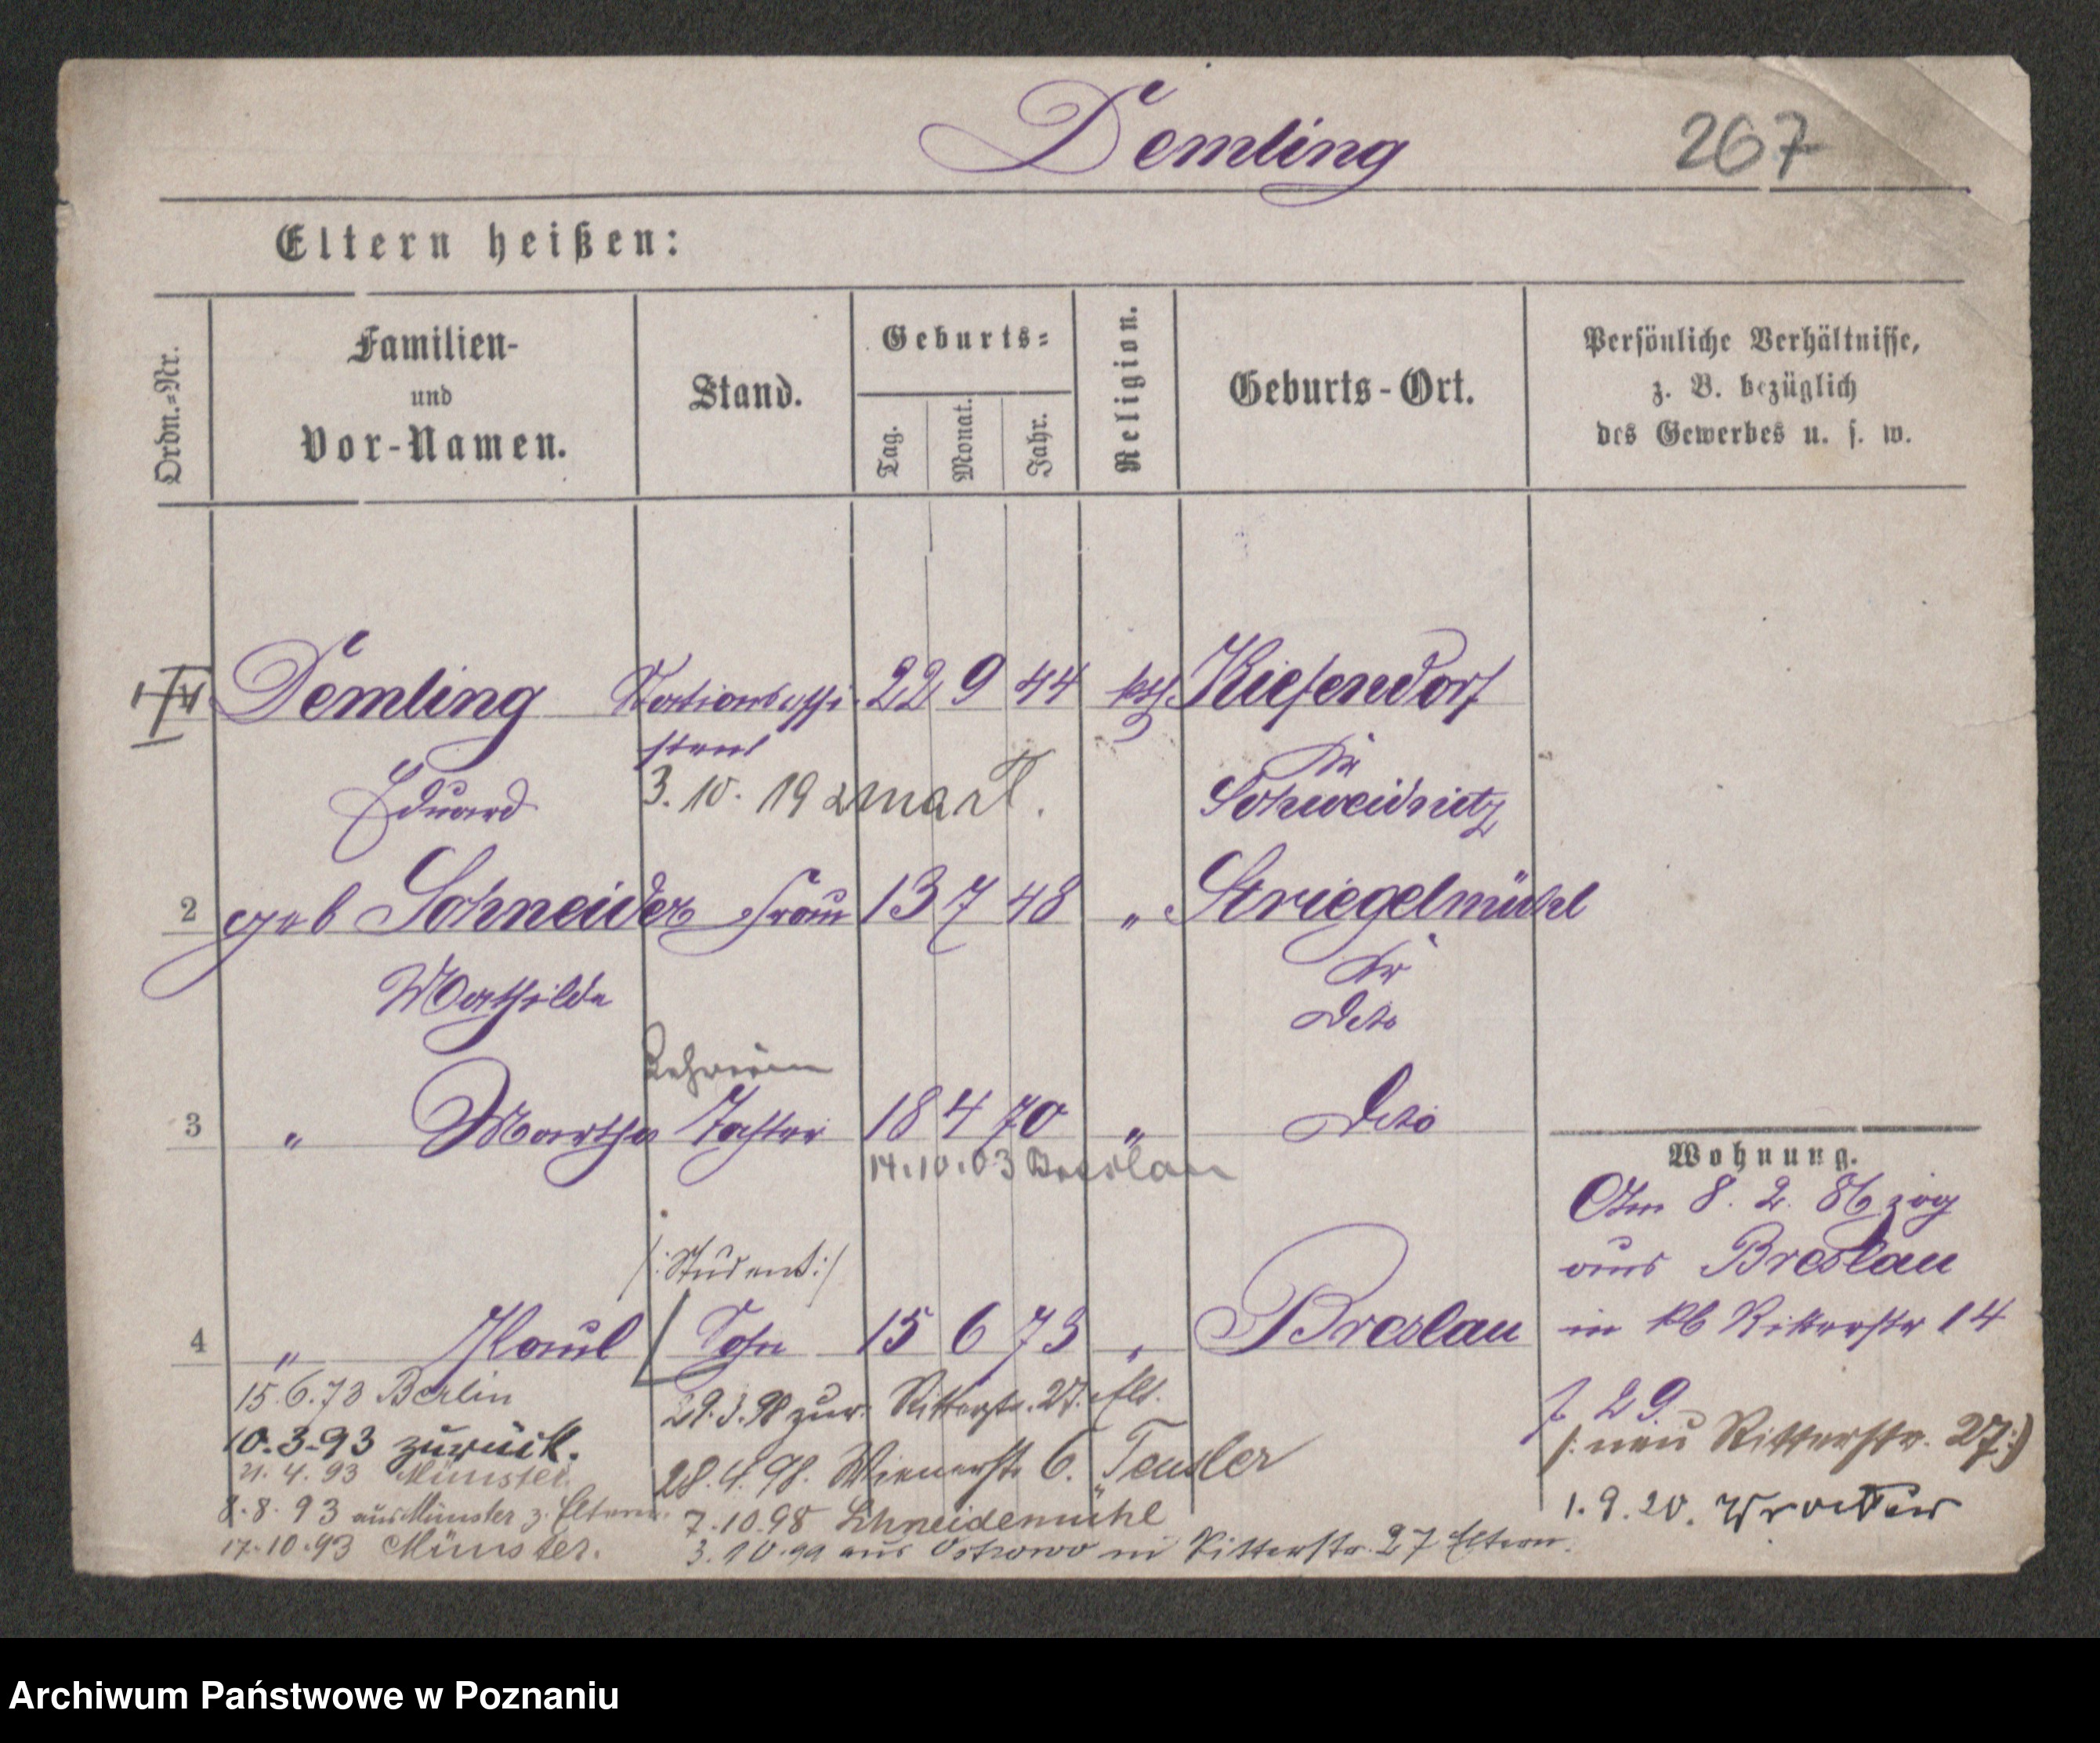 Demling
267
Eltern heißen:
Ordn.-Nr.
Familien-
und
Vor-Namen.
Stand.
Geburts-
Tag.
Monat.
Jahr.
Religion.
Geburts-Ort.
Persönliche Verhältnisse,
z. B. bezüglich
des Gewerbes u. s. w.
Demling Stationsassi- 22 9 44 kth. Kiefendorf
stent
Eduard
3.10.19 zmarł.
Kr
Schweidnitz
2 geb Schneider Frau 13 7 48 „ Striegelmühl
Mathilde
Kr
Deto
Lehrerin
3 „ Martha Tochter 18 4 70 „ Deto
14.10.03 Breslau
/:Student:/
4 „ Paul Sohn 15 6 73 „ Breslau
15.6.73 Berlin
10.3.93 zurück.
21.4.93 Münster.
8.8.93 aus Münster z. Eltern.
17.10.93 Münster.
29.3.98 zur. Ritterstr. 27. Elt.
28.4.98. Wienerstr. 6.
7.10.98 Schneidemühl
3.10.99 aus Ostrowo in Ritterstr. 27 Eltern.
Wohnung.
Am 8. 2. 86 zog
aus Breslau
in Ritterstr 14
29.
/: neu Ritterstr. 27:/
1.9.20.
Archiwum Państwowe w Poznaniu